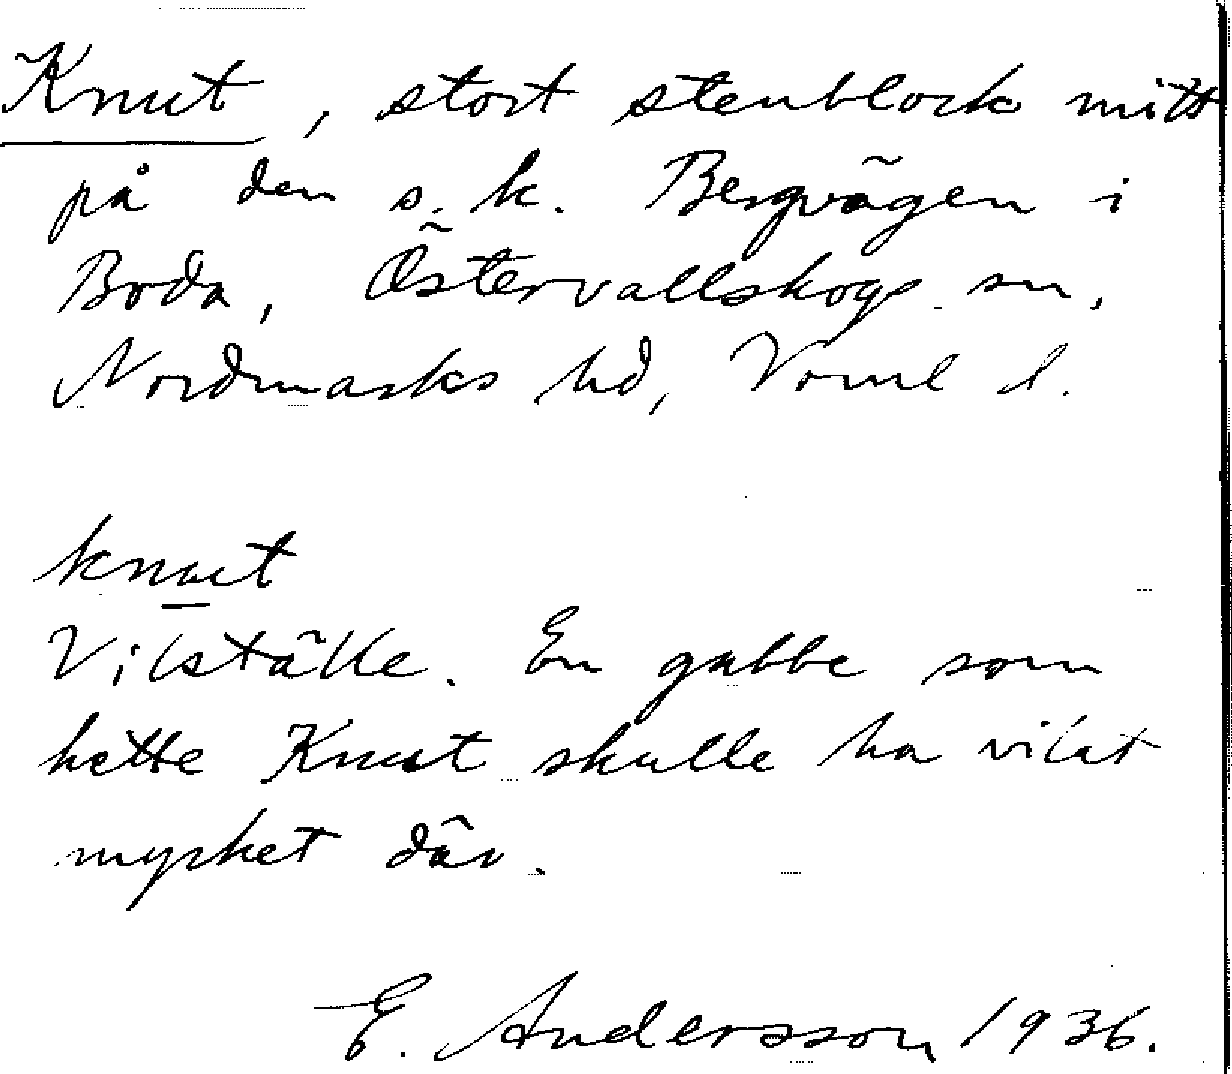 Knut, stort stenblock mitt
på den s.k. Bergvägen i
Boda, Östervallskogs sn,
Nordmarks hd, Värml l.
knut
Vilställe. En gubbe som
hette Knut skulle ha vilat
mycket där.
E. Andersson 1936.